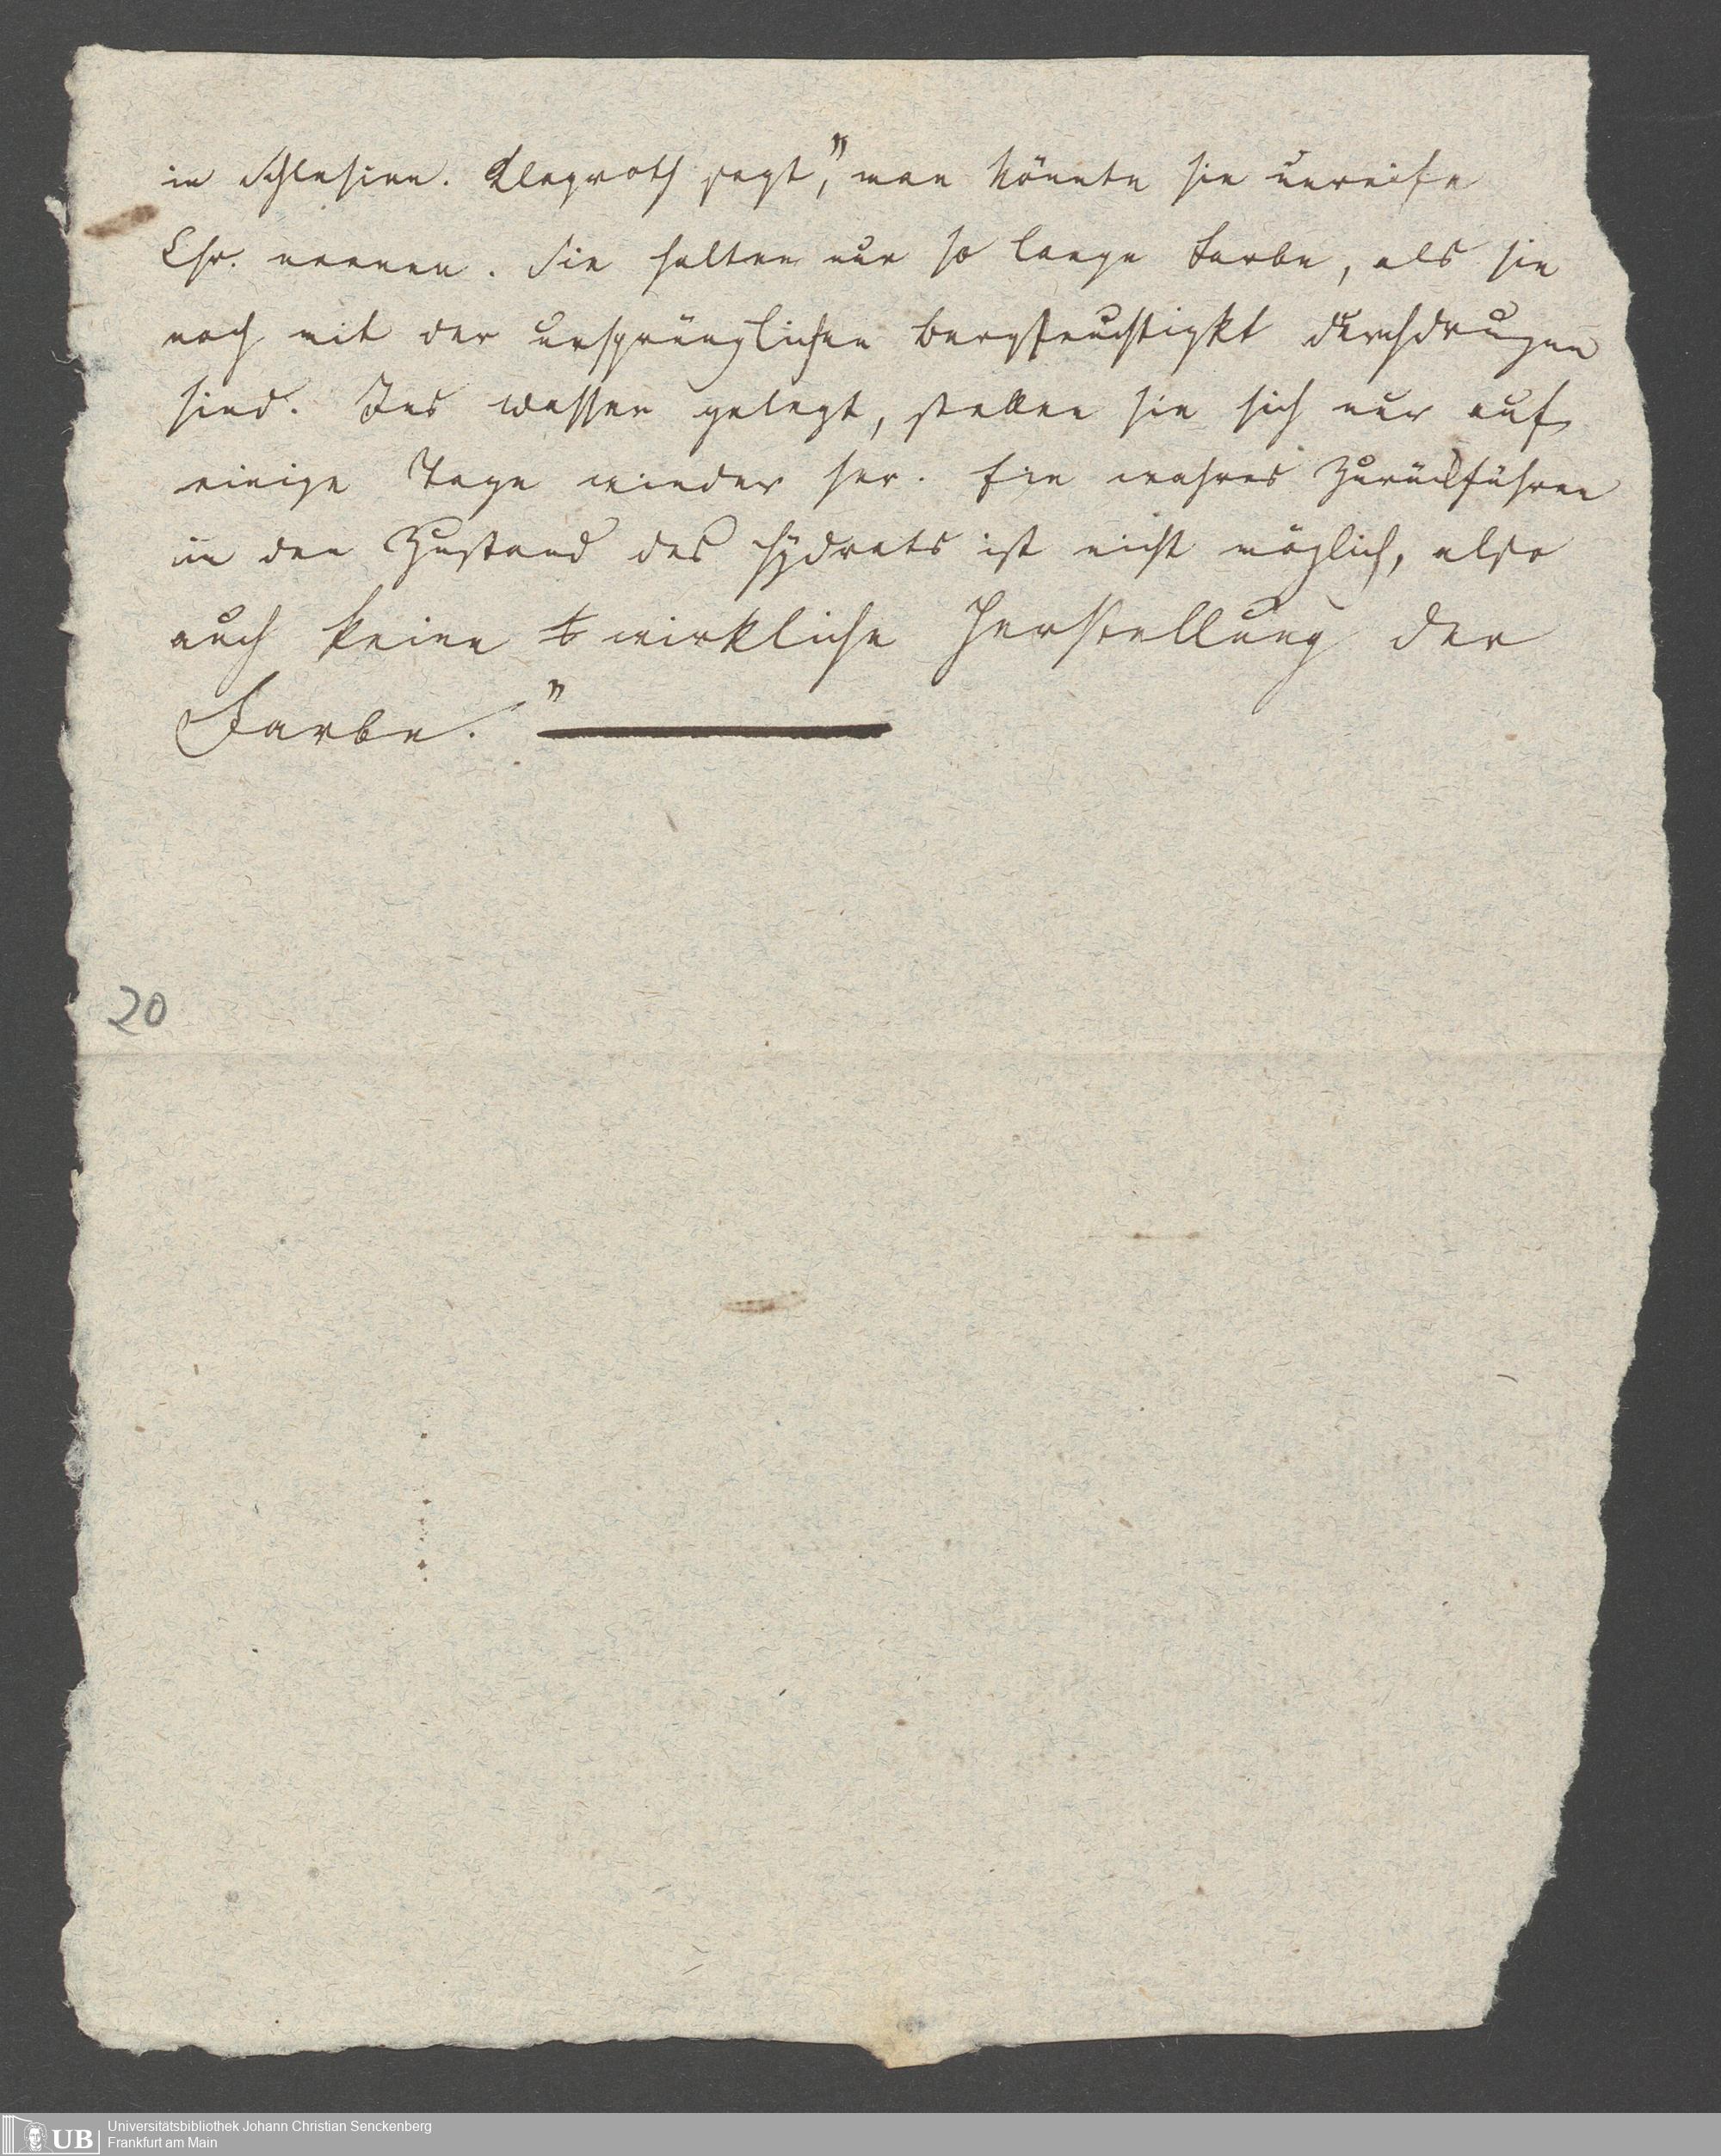 in Schlesien. Klaproth sagt, "man könnte sie unreife
Chr. nennen. Sie halten nur so lange Farbe, als sie
noch mit der ursprünglichen Bergfeuchtigkt durchdrungen
sind. Ins Wasser gelegt, stellen sie sich nur auf
einige Tage wieder her. Ein wahres Zurückführen
in den Zustand des Hydrats ist nicht möglich, also
auch keine wirkliche Herstellung der
Farbe."
20
UB Universitätsbibliothek Johann Christian Senckenberg
Frankfurt am Main